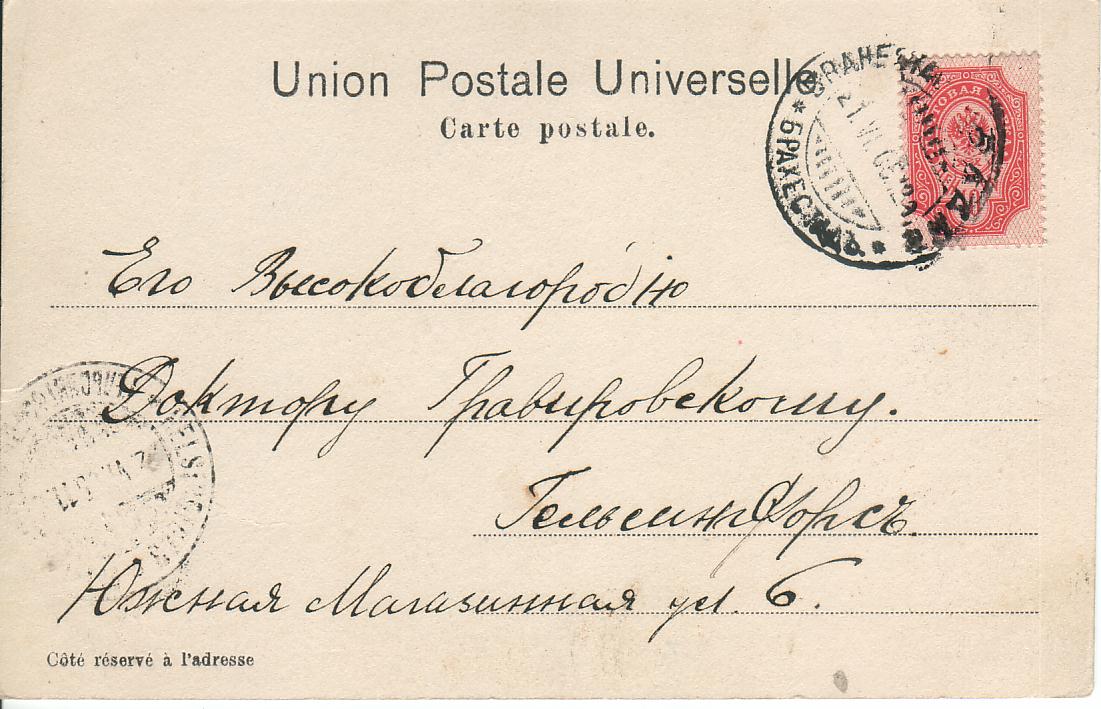 Union Postale Universelle
Carte postale.
БРАХЕСТАДЪ.
Его Высокоблагородію
Доктору Гравировскому.
Гельсингфорсъ.
Южная Магазинная ул. 6.
Côté réservé à l'adresse